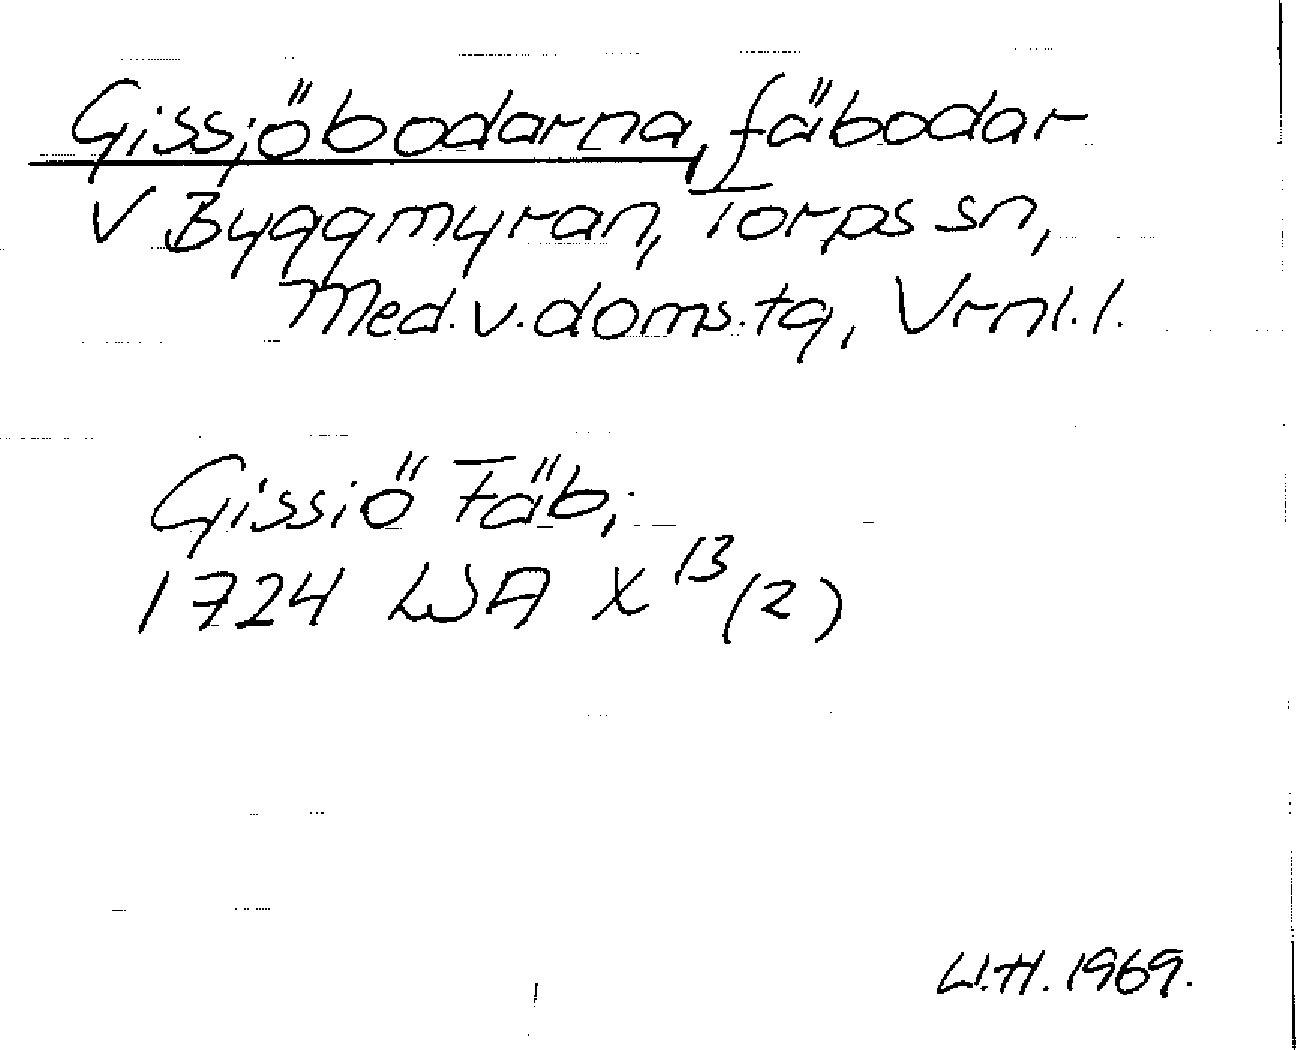 Gissjöbodarna, fäbodar
V Byggmyran, Torps sn,
Med. v. doms. tg, Vrnl. l.
Gissiö Fäb;
1724 LSA X 13 (2)
U.H. 1969.